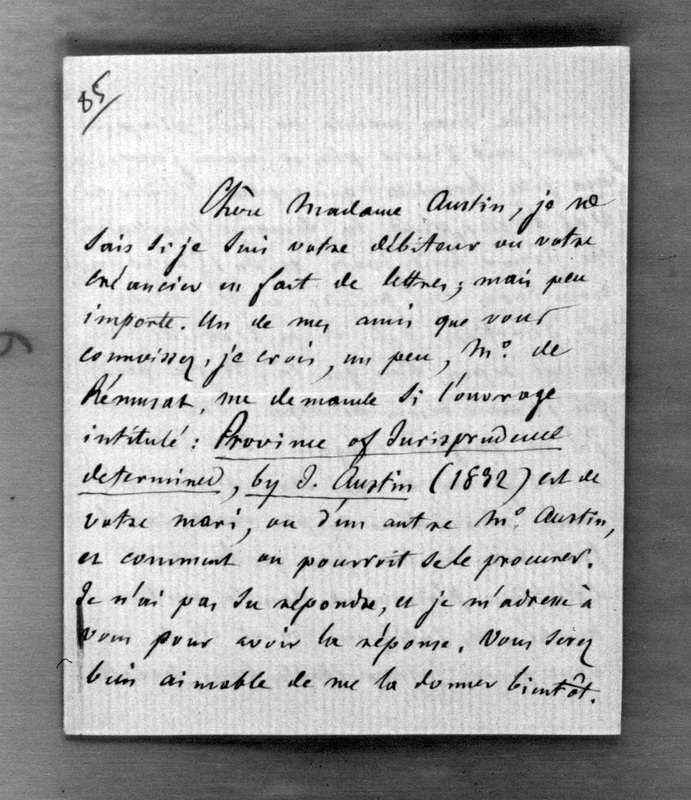 85
Chère Madame Austin, je ne
sais si je suis votre débiteur ou votre
créancier en fait de lettres; mais peu
importe. Un de mes amis que vous
connoissez, je crois, un peu, Mr. de
Rémusat, me demande si l'ouvrage
intitulé: Province of Jurisprudence
determined, by J. Austin (1832) est de
votre mari, ou d'un autre Mr. Austin,
et comment on pourroit se le procurer.
Je n'ai pas su répondre, et je m'adresse à
vous pour avoir la réponse. Vous serez
bien aimable de me la donner bientôt.